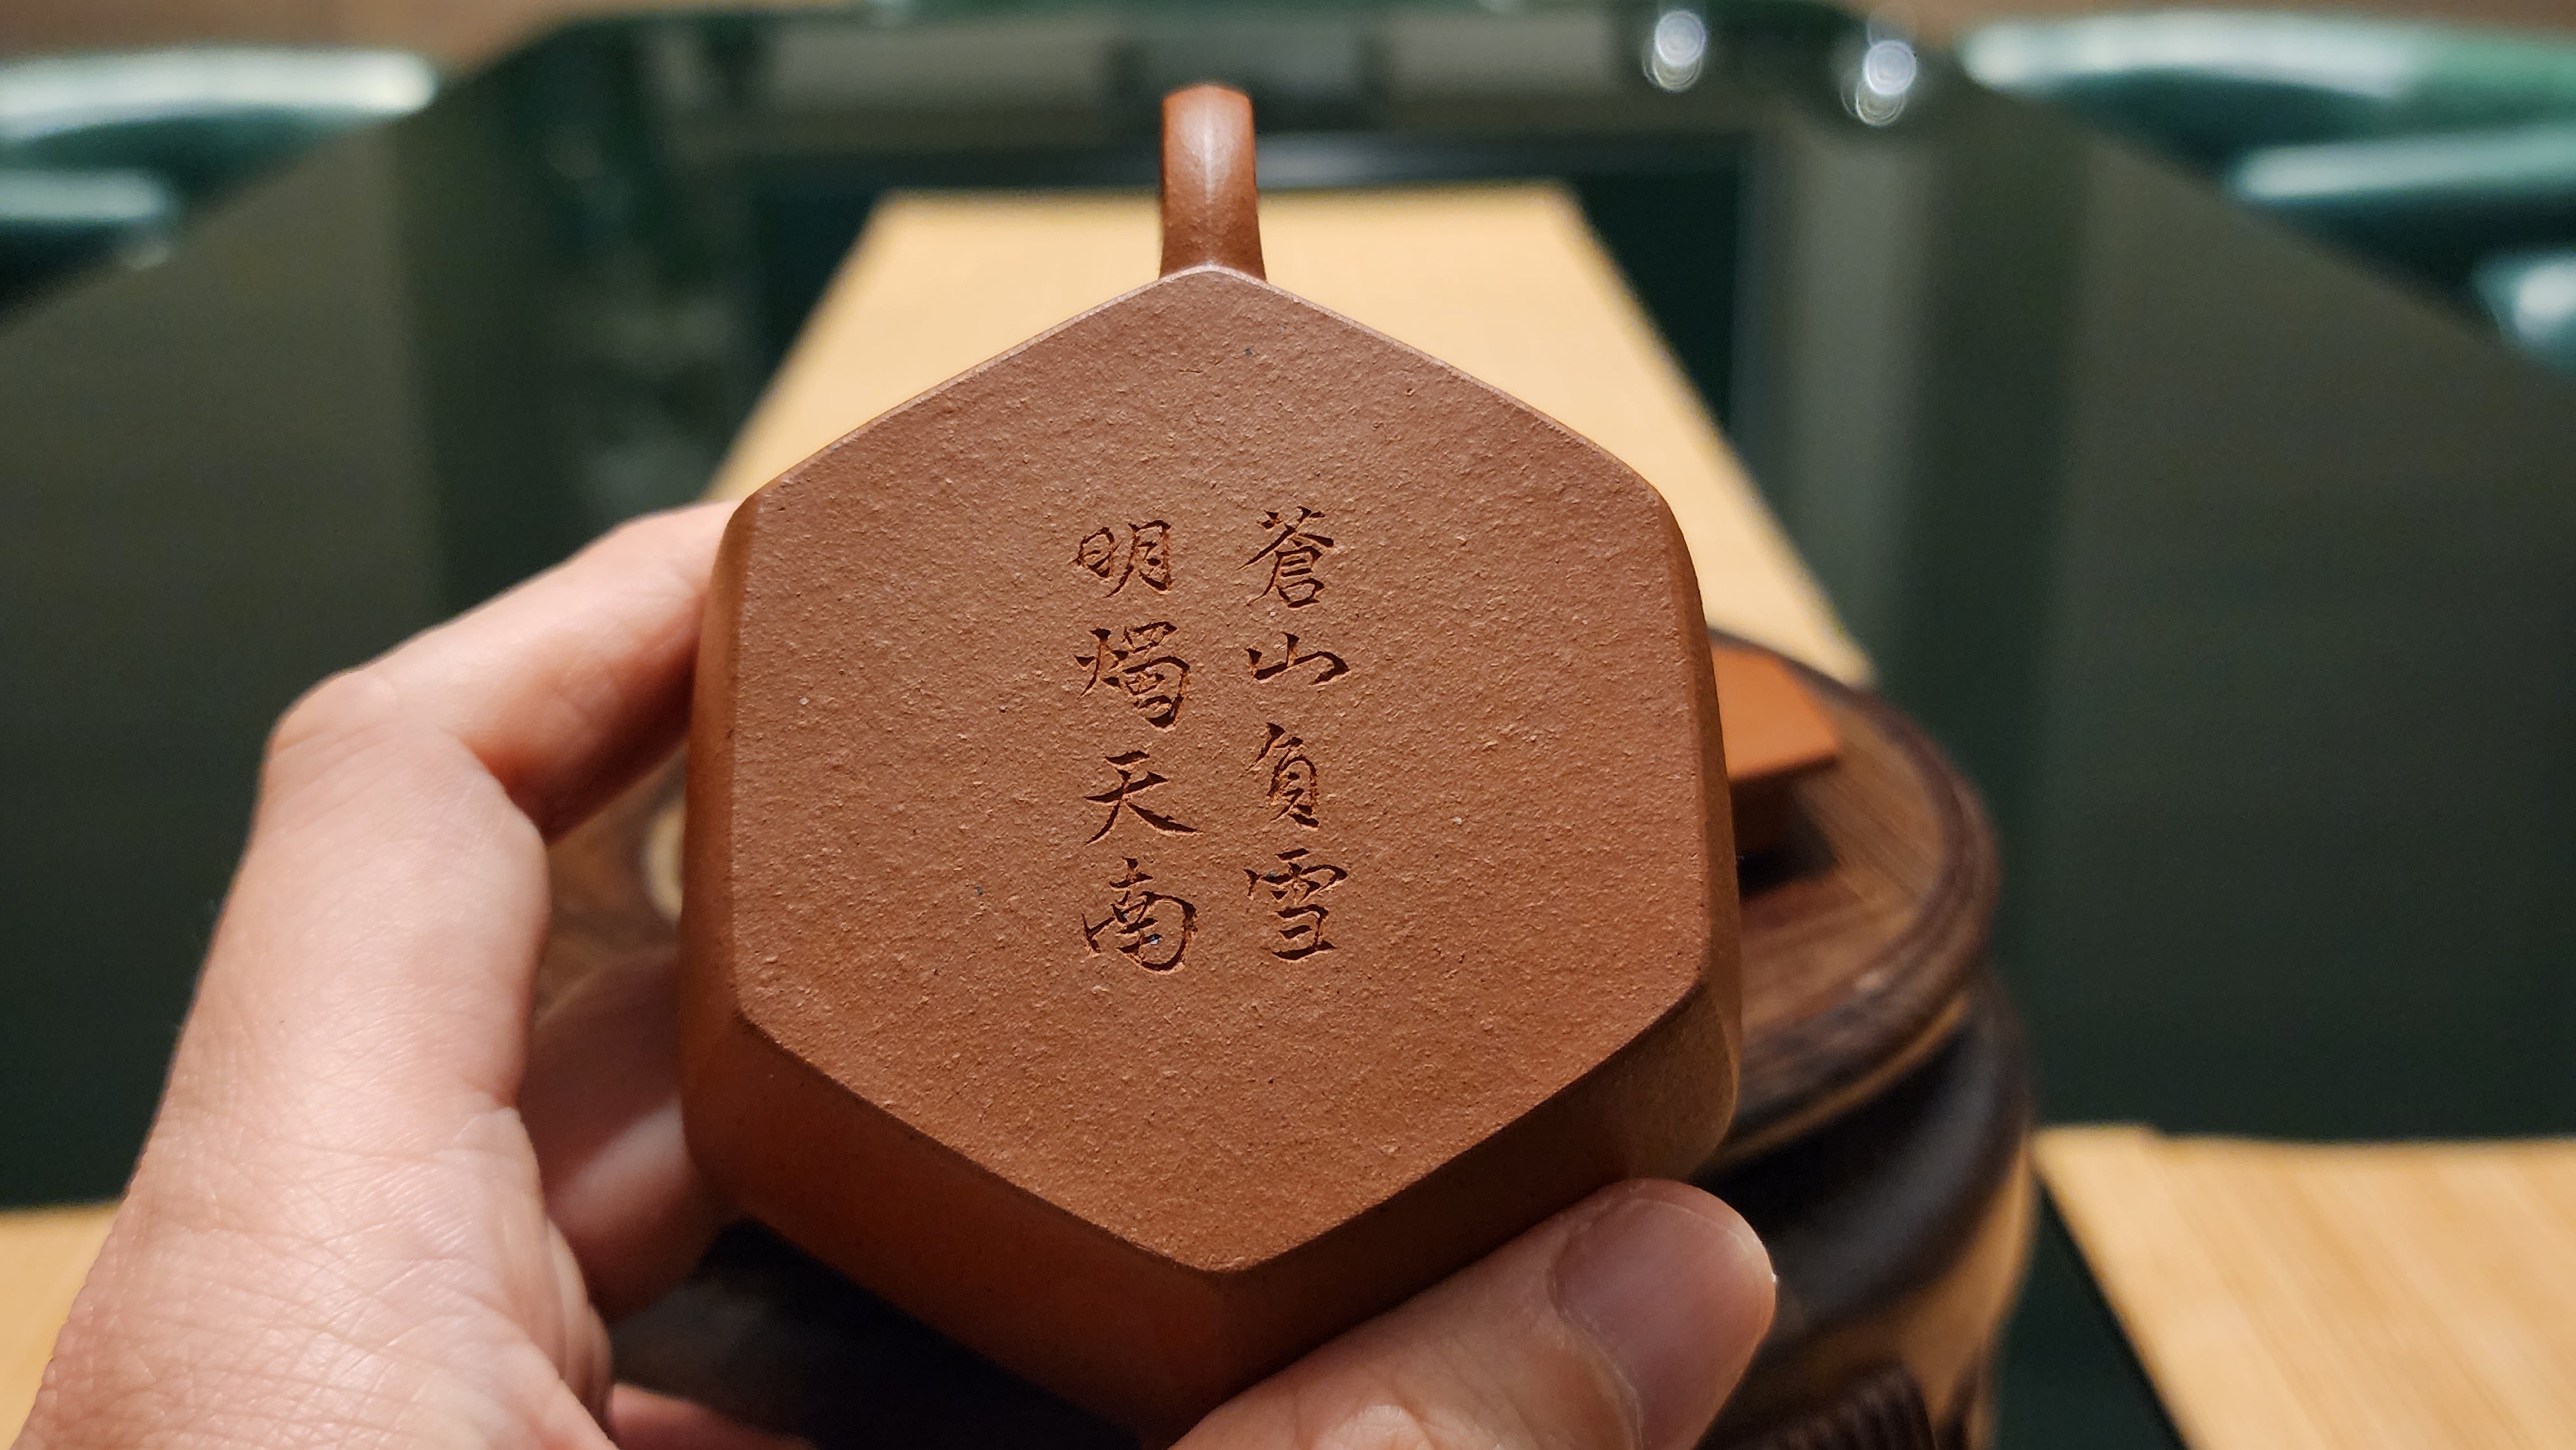 蒼山負雪
明燭天南